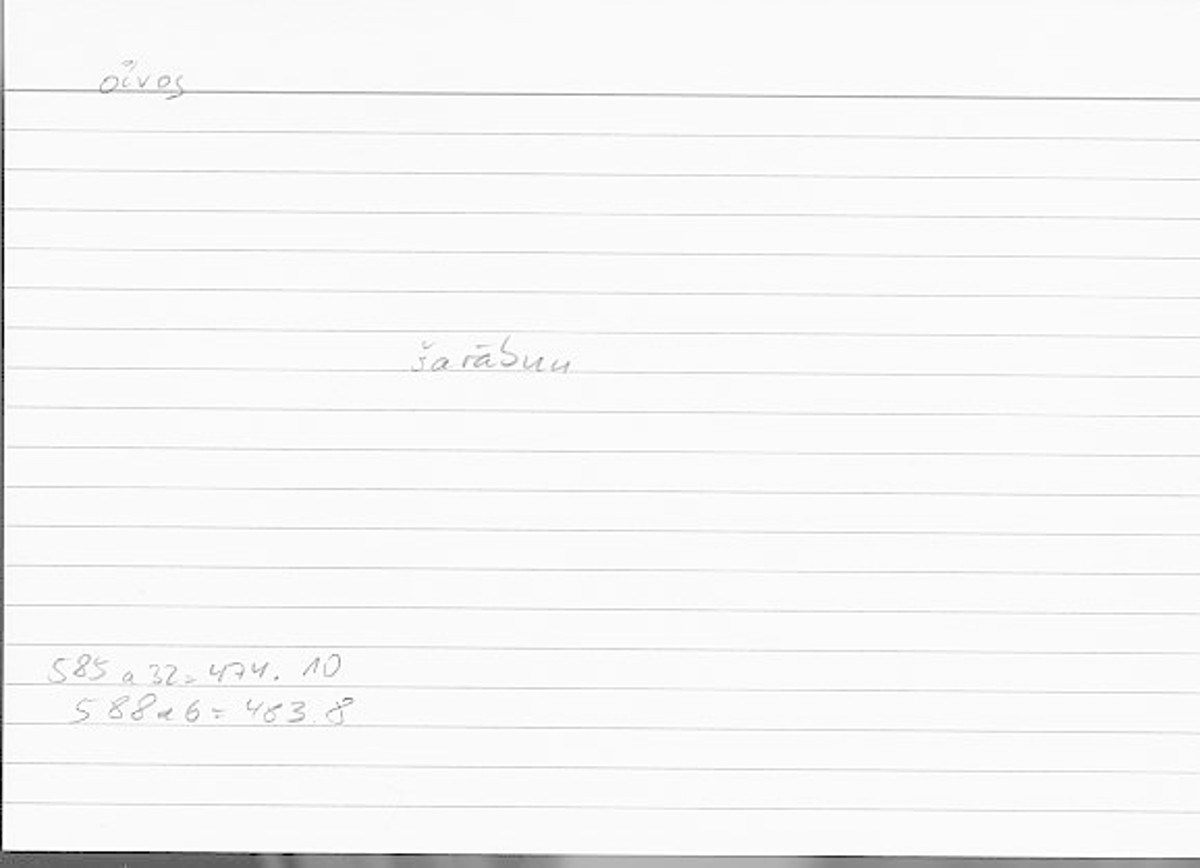 οἶνος
šarābun
585 a 32 = 474. 10
588 a 6 = 483.8